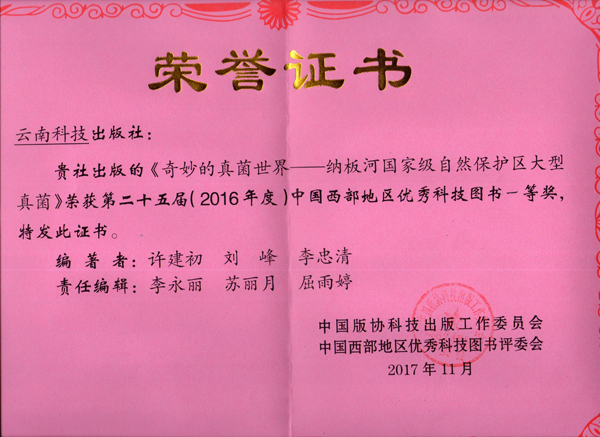 荣誉证书
云南科技出版社：
贵社出版的《奇妙的真菌世界——纳板河国家级自然保护区大型
真菌》荣获第二十五届(2016年度)中国西部地区优秀科技图书一等奖，
特发此证书。
编著者：许建初 刘峰 李忠清
责任编辑：李永丽 苏丽月 屈雨婷
中国版协科技出版工作委员会
中国西部地区优秀科技图书评委会
2017年11月